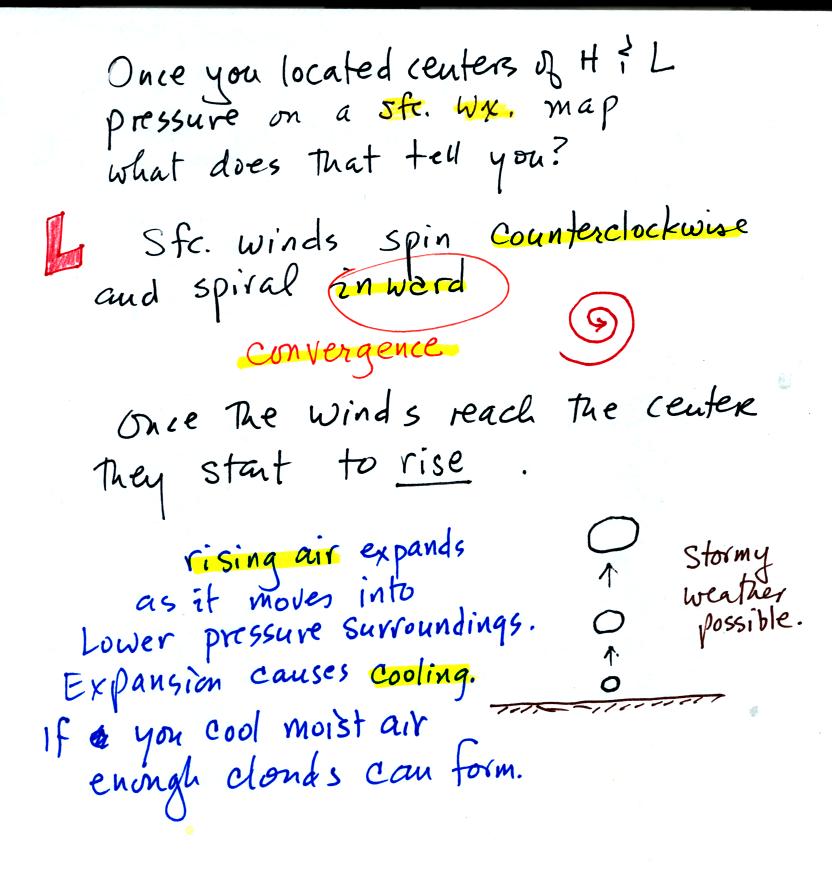 Once you located centers of H & L
pressure on a sfc. wx. map
what does that tell you?
L Sfc. winds spin counterclockwise
and spiral inward
convergence
Once the winds reach the center
they start to rise .
rising air expands
as it moves into
Lower pressure surroundings.
Expansion causes cooling.
If you cool moist air
enough clouds can form.
Stormy
weather
possible.